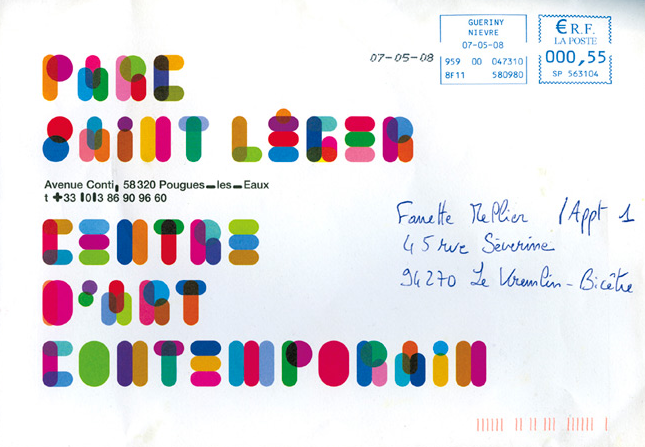 GUERINY
NIEVRE
07-05-08
959 00 047310
8F11 580980
€ R.F.
LA POSTE
000,55
SP 563104
07-05-08
PARC
SAINT LÉGER
Avenue Conti, 58320 Pougues-les-Eaux
t +33 (0)3 86 90 96 60
CENTRE
D'ART
CONTEMPORAIN
Fanette Mellier /Appt 1
45 rue Séverine
94270 Le Kremlin-Bicêtre